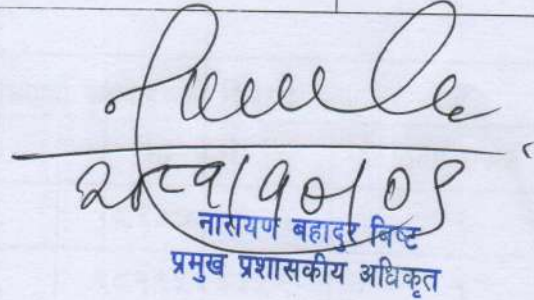 २०८१/१०/०९
नारायण बहादुर बिष्ट
प्रमुख प्रशासकीय अधिकृत